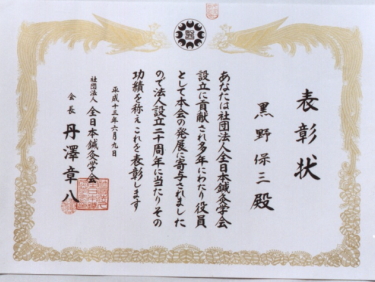 表彰状
黒野保三殿
あなたは社団法人全日本鍼灸学会
設立に貢献され多年にわたり役員
として本会の発展に寄与されました
ので法人設立二十周年に当たりその
功績を称えこれを表彰します
平成十三年六月九日
社団法人全日本鍼灸学会
会長 丹澤章八